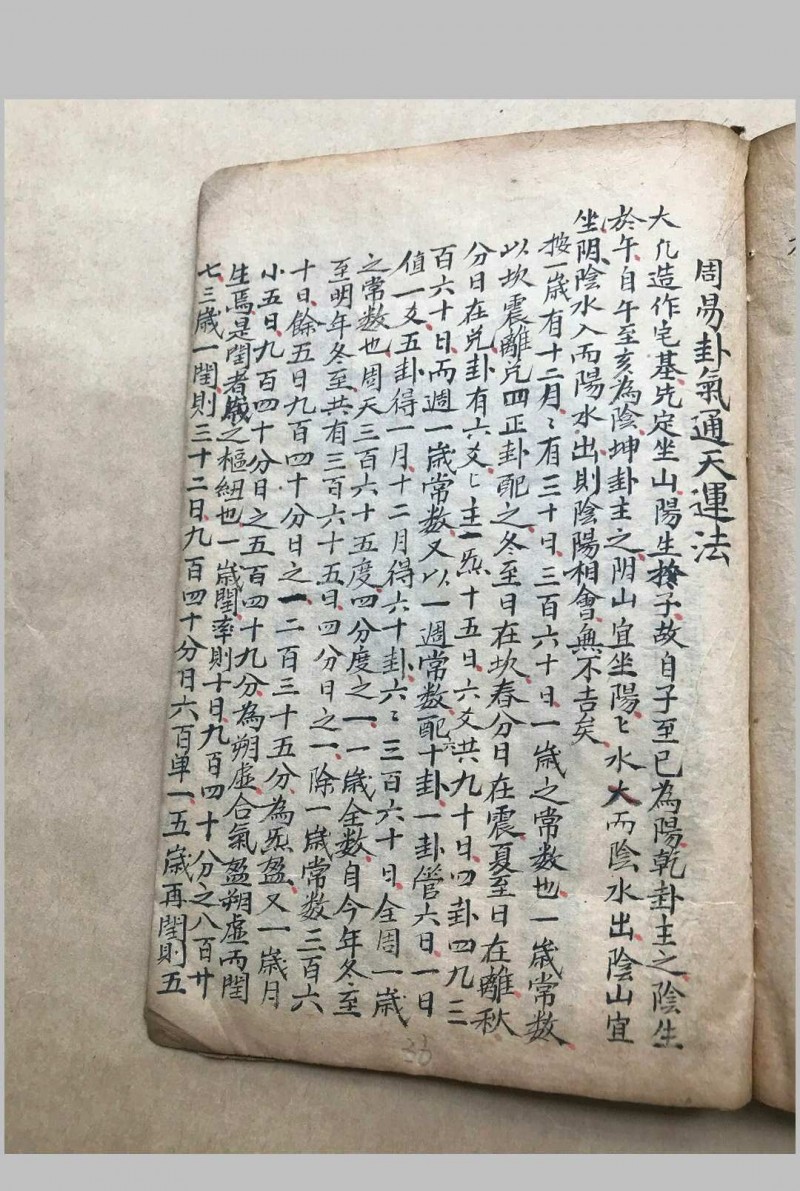 周易卦氣通天運法
大凡造作宅基先定坐山陽生於子故自子至巳為陽乾卦主之陰生
於午自午至亥為陰坤卦主之阴山宜坐陽〻水大而陰水出陰山宜
坐阴陰水入而陽水出則陰陽相會無不吉矣
按一歲有十二月〻有三十日三百六十日一歲之常数也一歲常数
以坎震離兑四正卦配之冬至日在坎春分日在震夏至日在離秋
分日在兑卦有六爻〻主一炁十五日六爻共九十日四卦四九三
百六十日而週一歲常数又以一週常数配六十卦一卦管六日一日
值一爻五卦得一月十二月得六十卦六〻三百六十日全周一歲
之常数也周天三百六十五度四分度之一一歲全数自今年冬至
至明年冬至共有三百六十五日四分日之一除一歲常数三百六
十日餘五日九百四十分日之一二百三十五分為炁盈又一歲月
小五日九百四十分日之五百四十九分為朔虛合氣盈朔虛而閏
生焉是閏者歲之樞紐也一歲閏率則十日九百四十分之八百廿
七三歲一閏則三十二日九百四十分日六百单一五歲再閏則五
33